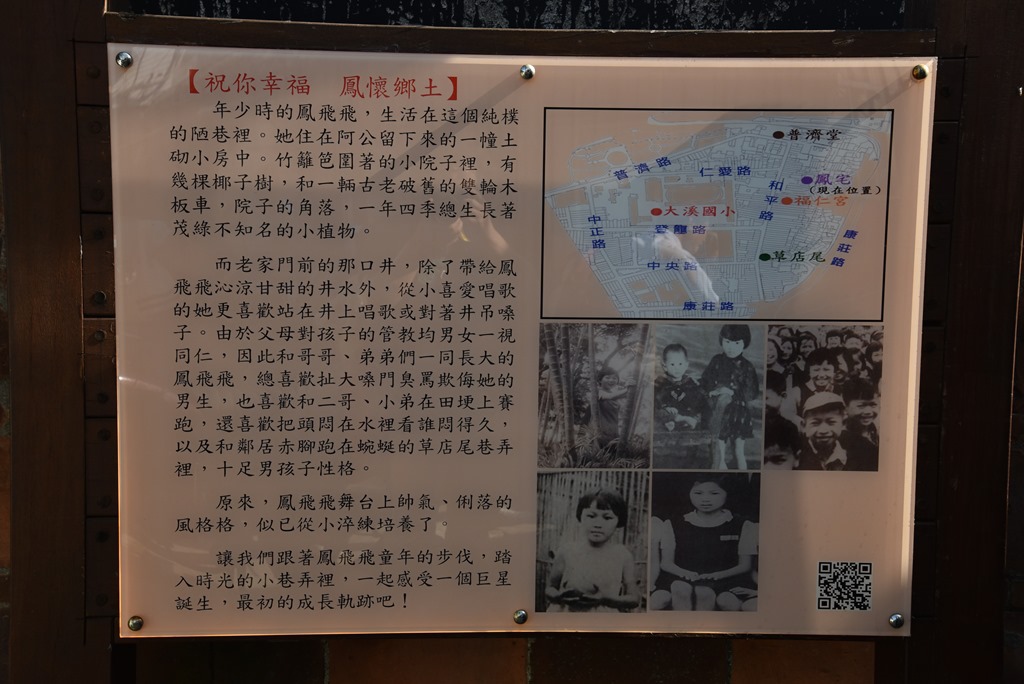 【祝你幸福　鳳懷鄉土】
年少時的鳳飛飛，生活在這個純樸
的陋巷裡。她住在阿公留下來的一幢土
砌小房中。竹籬笆圍著的小院子裡，有
幾棵椰子樹，和一輛古老破舊的雙輪木
板車，院子的角落，一年四季總生長著
茂綠不知名的小植物。
而老家門前的那口井，除了帶給鳳
飛飛沁涼甘甜的井水外，從小喜愛唱歌
的她更喜歡站在井上唱歌或對著井吊嗓
子。由於父母對孩子的管教均男女一視
同仁，因此和哥哥、弟弟們一同長大的
鳳飛飛，總喜歡扯大嗓門臭罵欺侮她的
男生，也喜歡和二哥、小弟在田埂上賽
跑，還喜歡把頭悶在水裡看誰悶得久，
以及和鄰居赤腳跑在蜿蜒的草店尾巷弄
裡，十足男孩子性格。
原來，鳳飛飛舞台上帥氣、俐落的
風格格，似已從小淬練培養了。
讓我們跟著鳳飛飛童年的步伐，踏
入時光的小巷弄裡，一起感受一個巨星
誕生，最初的成長軌跡吧！
普濟堂
普濟路
仁愛路
和平路
鳳宅
(現在位置)
福仁宮
大溪國小
登龍路
中正路
康莊路
草店尾
中央路
康莊路